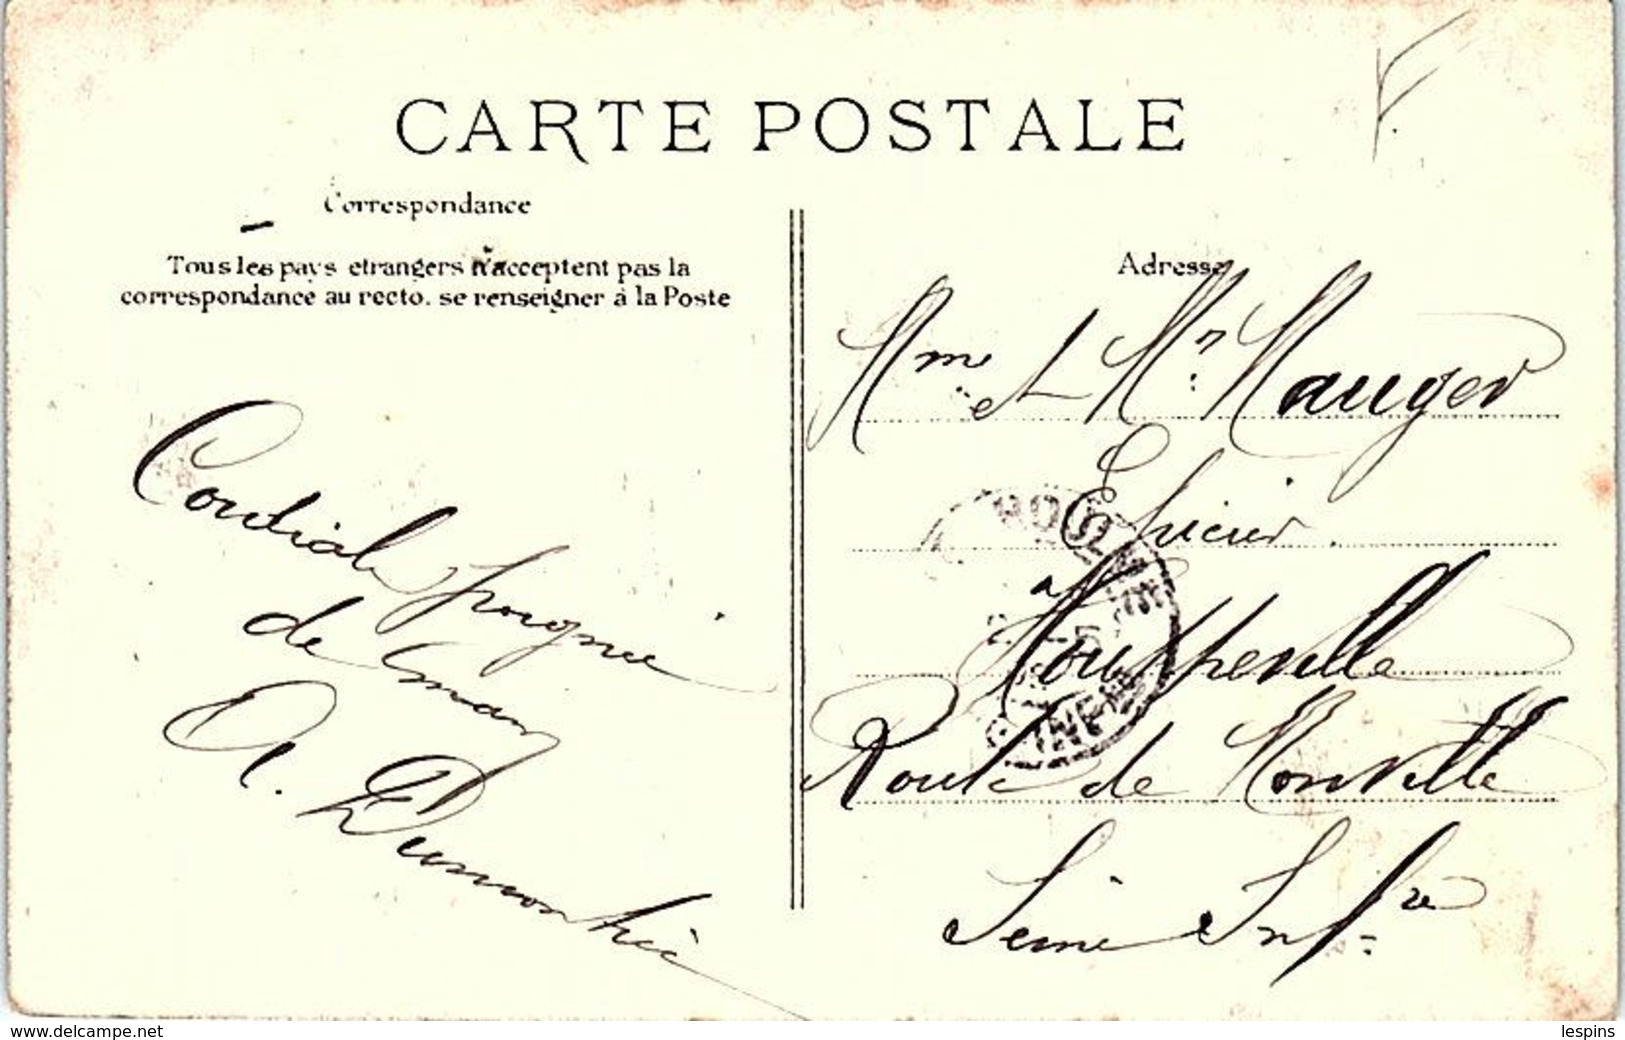 F.
CARTE POSTALE
Correspondance
Tous les pays etrangers n'acceptent pas la
correspondance au recto. se renseigner à la Poste
Cordiale poignée
de main
A. Dumontier
Adresse
Mme et Mr. Mauger
Epicier
à Houppeville
Route de Monville
Seine Infre
www.delcampe.net
lespins